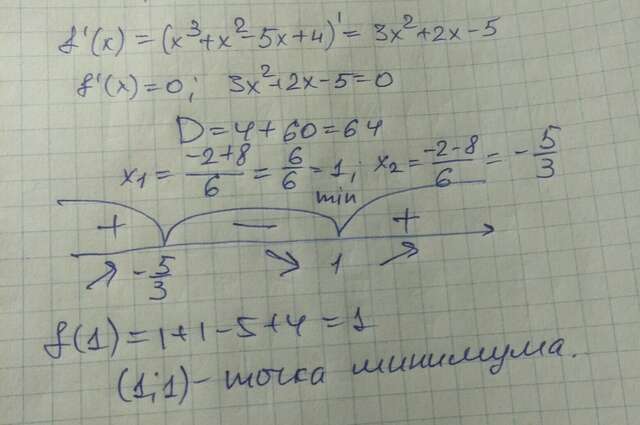 f'(x) = (x³+x²-5x+4)' = 3x²+2x-5
f'(x)=0; 3x²+2x-5=0
D=4+60=64
x₁ = (-2+8)/6 = 6/6 = 1; x₂ = (-2-8)/6 = -5/3
min
+ — +
↗ -5/3 ↘ 1 ↗
f(1)=1+1-5+4=1
(1;1)-точка минимума.